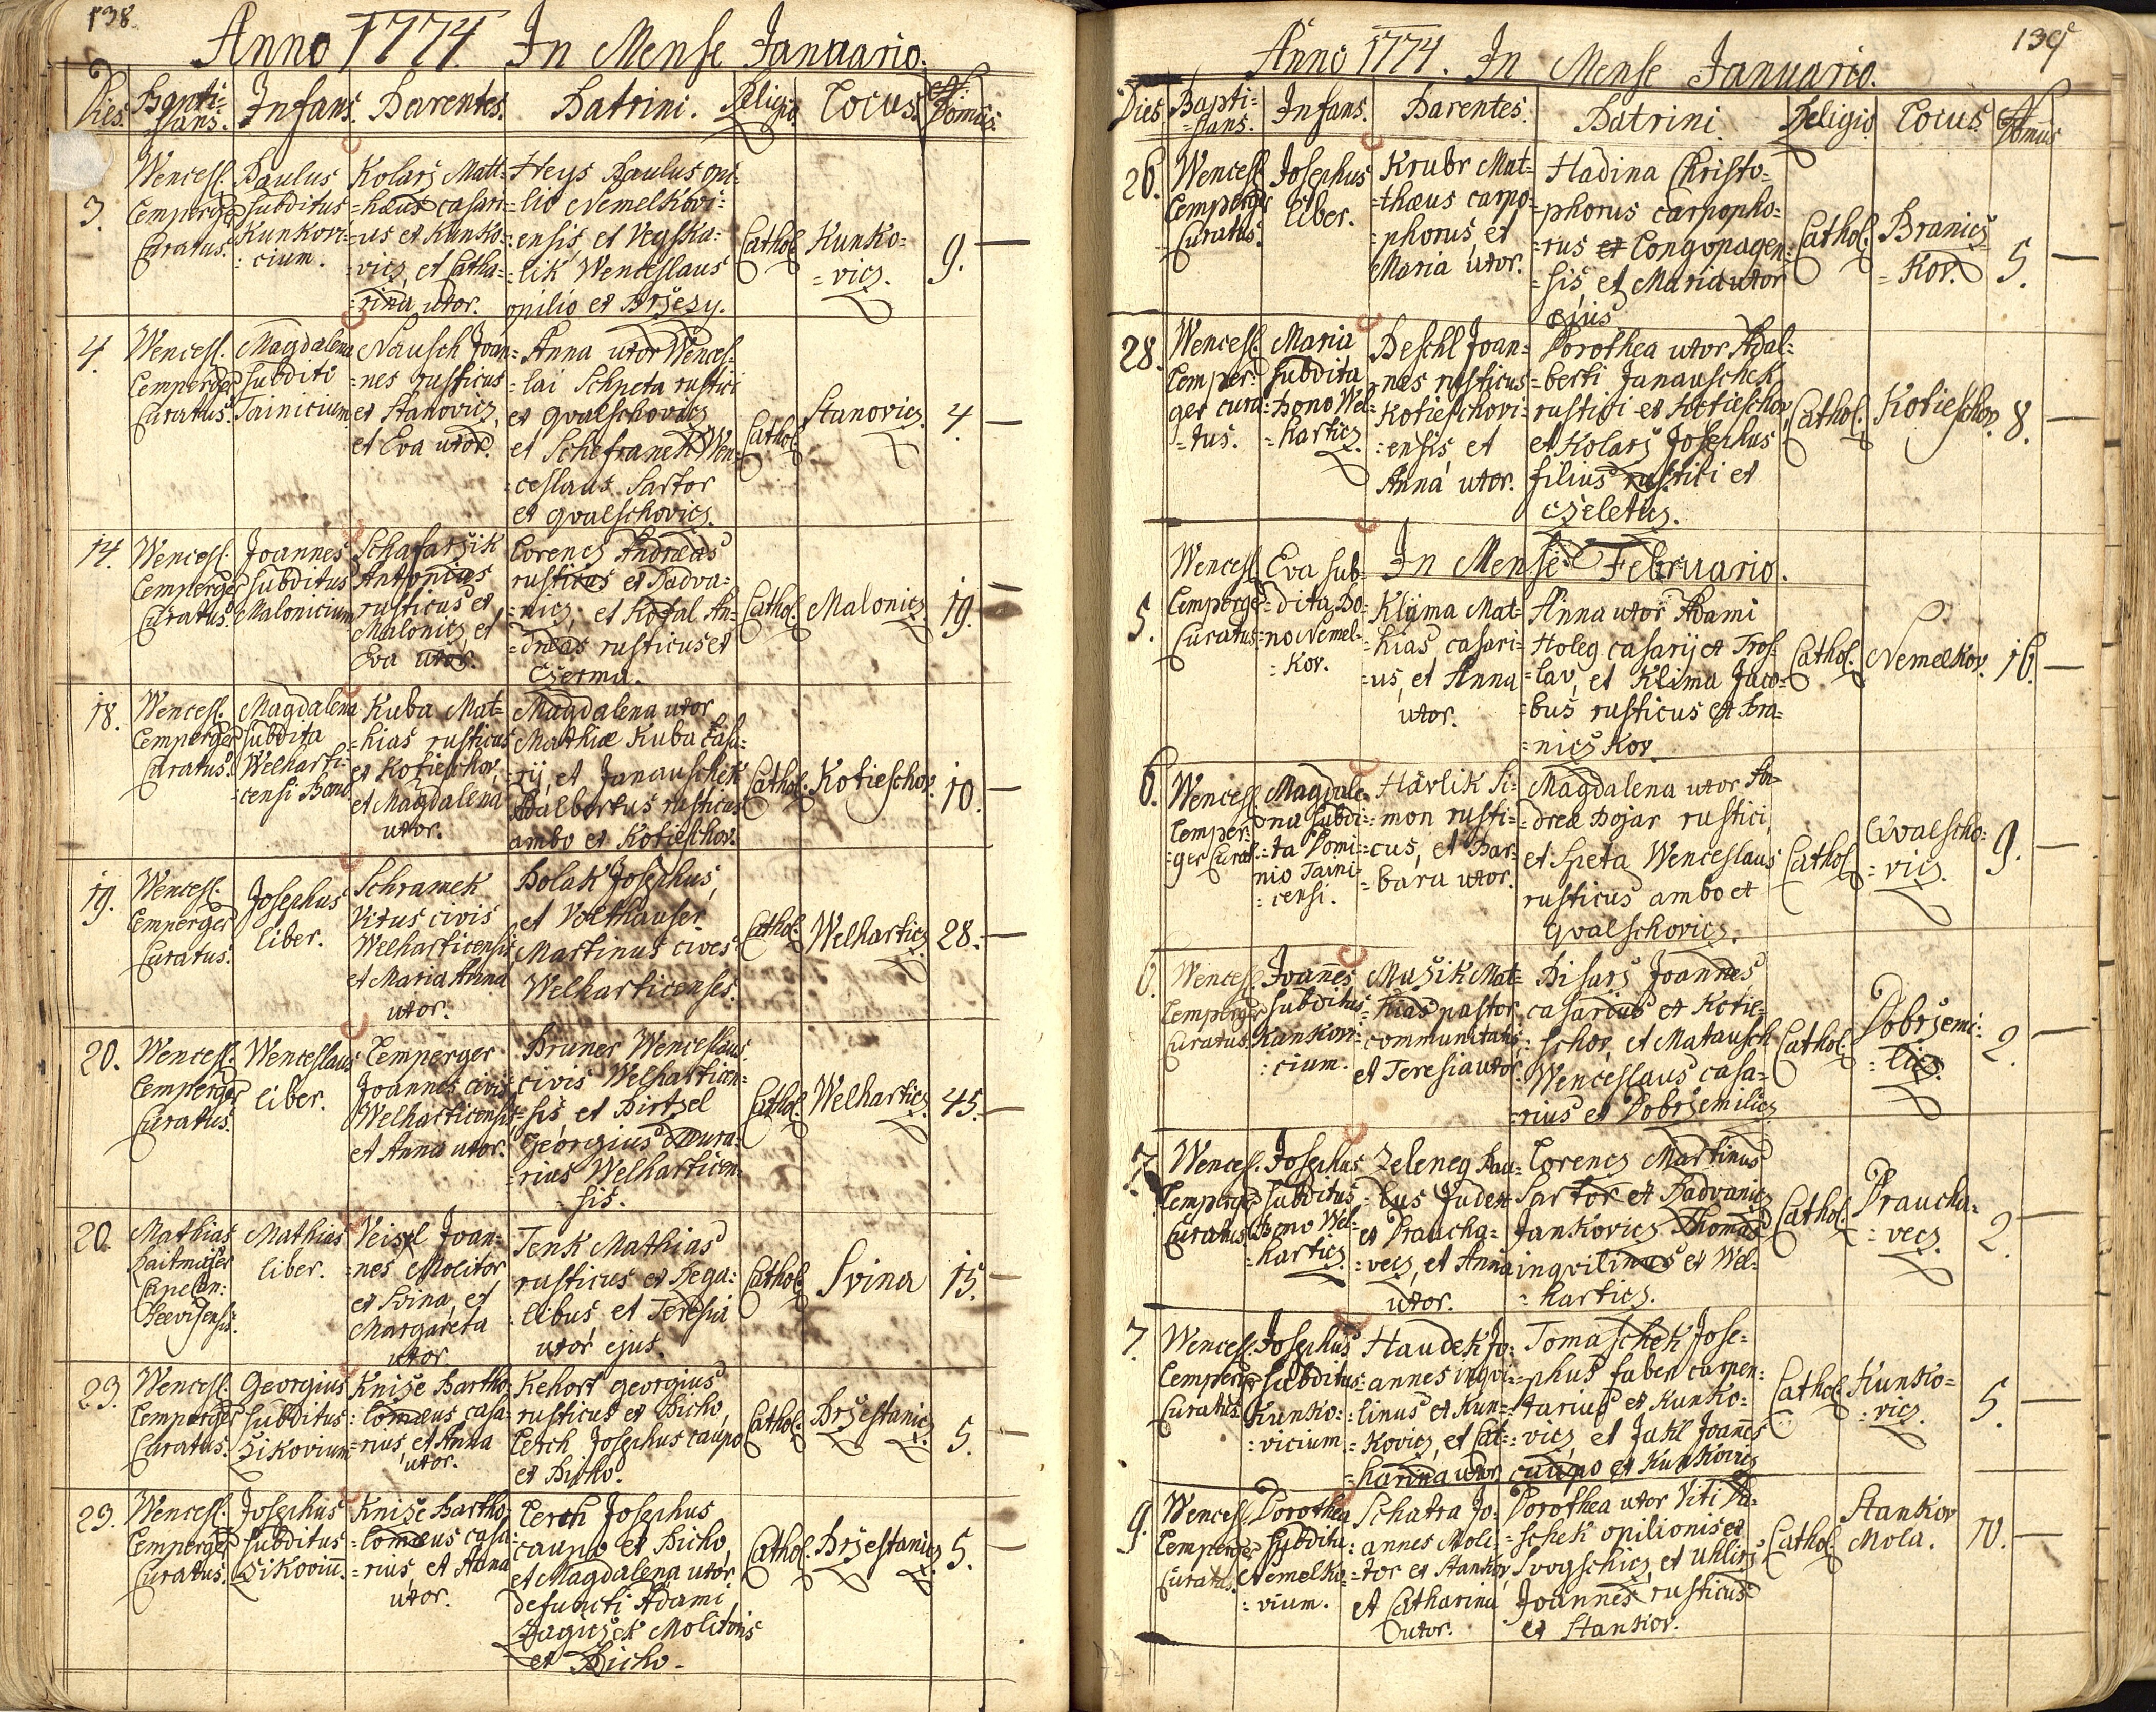 138.
Anno 1774. In Mense Januario.
Dies. Bapti- Infans. Parentes. Patrini. Religio. Locus. No.
=sans. Domus.
3. Wencesl. Lemperger Curatus.
Paulus subditus Kunkovi-
:cium.
Kolarz Matt-
=haus casari-
=us ex Kunko-
=vicz, et Catha-
=rina uxor.
Heys Paulus opi-
=lio Nemelkovi-
:ensis, et Vegska-
:lik Wenceslaus
opilio ex Brzezy.
Cathol. Kunko-
=vicz. 9.
4. Wencesl. Lemperger Curatus.
Magdalena
subditi
Tainicium
Nausch Joan-
=nes rusticus
ex Stanovicz,
et Eva uxor.
Anna uxor Wences-
lai Schpeta rustici
ex Qvalschovicz
et Schefranek Wen-
=ceslaus Sartor
ex Qvalschovicz.
Cathol. Stanovicz. 4.
14. Wencesl. Lemperger Curatus.
Joannes
subditus
Malonicium
Schafarzik
Antonius
rusticus ex
Malonicz, et
Eva uxor.
Lorencz Andreas
rusticus ex Nadva-
=nicz, et Kotal An-
=dreas rusticus ex
Czerma.
Cathol. Malonicz. 19.
18. Wencesl. Lemperger Curatus.
Magdalena
subdita
Welharti-
=censi Bono
Kuba Mat-
=hias rusticus
ex Kotieschov,
et Magdalena
uxor.
Magdalena uxor
Mathiæ Kuba casa-
=rij, et Janauschek
Adalbertus rusticus
ambo ex Kotieschov.
Cathol. Kotieschov. 10.
19. Wencesl. Lemperger Curatus.
Josephus
liber.
Schramek
Vitus civis
Welharticensis
et Maria Anna
uxor.
Polak Josephus,
et Volthauser
Martinus cives
Welharticenses.
Cathol. Welharticz. 28.
20. Wencesl. Lemperger Curatus.
Wenceslaus
liber.
Lemperger
Joannes civis
Welharticensis
et Anna uxor.
Bruner Wenceslaus
civis Welharticen-
=sis et Pirtzel
Georgius Mura-
=rius Welharticen-
=sis.
Cathol. Welharticz. 45.
20. Mathias
Haitmajer
Capelan:
Mathias
liber.
Veisel Joan-
=nes Molitor
ex Svina, et
Margareta
uxor
Tenk Mathias
rusticus ex Sega-
:libus, et Teresia
uxor ejus.
Cathol. Svina 15.
23. Wencesl. Lemperger Curatus.
Georgius
subditus
Zikovium
Knize Bartho-
:lomæus casa-
=rius, et Anna
uxor.
Kehort Georgius
rusticus ex Bicho,
Lerch Josephus caupo
ex Bicho.
Cathol. Brzestanicz. 5.
23. Wencesl. Lemperger Curatus.
Josephus
subditus
Zikoviū.
Knize Bartho-
:lomæus casa-
=rius, et Anna
uxor.
Lerch Josephus
caupo ex Bicho,
et Magdalena uxor
defuncti Adami
Zagiczek Molitoris
ex Bicho.
Cathol. Brzestanicz. 5.
139
Anno 1774. In Mense Januario.
Dies. Bapti- Infans. Parentes. Patrini. Religio. Locus. No.
=sans. Domus
26. Wencesl. Lemperger Curatus.
Josephus
liber.
Krubr Mat-
=thæus carpo-
=phorus, et
Maria uxor.
Hadina Christo-
=phorus carpopho-
=rus ex Longopagen-
=sis, et Maria uxor
ejus
Cathol. Branicz
=Kov. 5.
28. Wencesl. Lemper-
ger cura-
=tus.
Maria
subdita
Bono Wel-
=harticz.
Peschl Joan-
=nes rusticus
Kotieschovi-
:ensis, et
Anna uxor.
Dorothea uxor Adal-
=berti Janauschek
rustici ex Kotieschov,
et Kolarz Josephus
filius rustici ex
Czeletitz.
Cathol. Kotieschov. 8.
In Mense Februario.
5. Wencesl. Lemperger Curatus
Eva sub-
=dita Bo-
=no Nemel-
=kov.
Klima Mat-
=hias casari-
=us, et Anna
uxor.
Anna uxor Adami
Holeg casarij ex Tros-
=lav, et Klima Jaco-
=bus rusticus ex Bra-
=nicz Kov.
Cathol. Nemelkov. 16.
6. Wencesl. Lemper-
=ger Curat.
Magdale-
na subdi-
=ta Domi-
nio Taini-
:censi.
Havlik Si-
=mon rusti-
=cus, et Bar-
=bara uxor.
Magdalena uxor An-
=dreæ Bojar rustici,
et Speta Wenceslaus
rusticus ambo ex
Qvalschovicz.
Cathol. Qvalscho-
=vicz. 9.
6. Wencesl. Lemperger Curatus.
Joañes
subditus
Kunkovi-
:cium.
Muzik Mat-
=hias pastor
communitatis
et Teresia uxor.
Pisarz Joannes
casarius ex Kotie-
=schov, et Matausch
Wenceslaus casa-
=rius ex Dobrzemilicz
Cathol. Dobrzemi-
=licz. 2.
7. Wencesl. Lemperger Curatus
Josephus
subditus
Bono Wel-
=harticz.
Zeleneg Pau-
=lus Judex
ex Praucha-
=vecz, et Anna
uxor.
Lorencz Martinus
Sartor ex Nadvanicz
Jankovicz Thomas
inqvilinus ex Wel-
=harticz.
Cathol. Praucha-
=vecz. 2.
7. Wencesl. Lemperger Curatus.
Josephus
subditus
Kunko-
:vicium.
Haudek Jo-
=annes inqvi-
:linus ex Kun-
=kovicz, et Cat-
=harina uxor
Tomaschek Jose-
=phus faber carpen-
=tarius ex Kunko-
=vicz, et Jukl Joañes
caupo ex Kunkovicz
Cathol. Kunko-
=vicz. 5.
9. Wencesl. Lemperger Curatus.
Dorothea
subdita
Nemelko-
:vium.
Schatra Jo-
annes Moli-
=tor ex Stankov,
et Catharina
uxor.
Dorothea uxor Viti Pa-
=schek opilionis ex
Svogschicz, et Uhlirz
Joannes rusticus
ex Stankov.
Cathol. Stankov
Mola. 10.